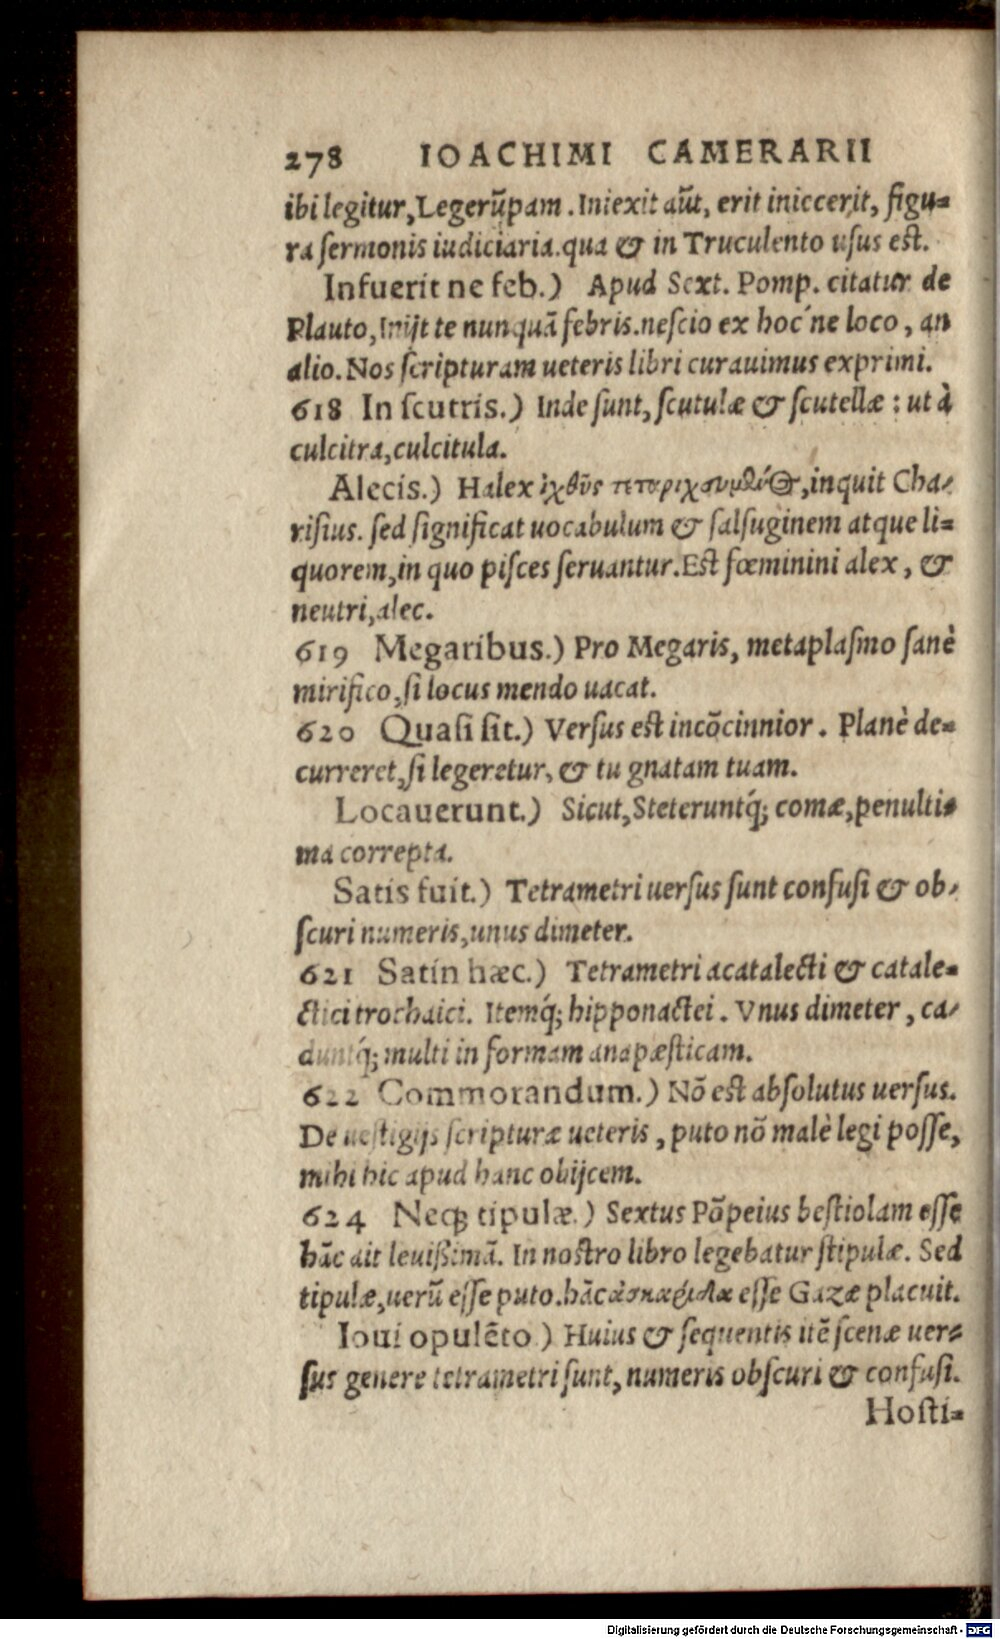 278 IOACHIMI CAMERARII
ibi legitur, Legerũpam. Iniexit aũt, erit iniecerit, figu-
ra ſermonis iudiciaria. qua & in Truculento uſus eſt.
Infuerit ne feb.) Apud Sext. Pomp. citatur de
Plauto, Inijt te nunquã febris. neſcio ex hoc'ne loco, an
alio. Nos ſcripturam ueteris libri curauimus exprimi.
618 In ſcutris.) Inde ſunt, ſcutulæ & ſcutellæ: ut à
culcitra, culcitula.
Alecis.) Halex ἰχθῦς inquit Cha-
riſius. ſed ſignificat uocabulum & ſalſuginem atque li-
quorem, in quo piſces ſeruantur. Eſt fœminini alex, &
neutri, alec.
619 Megaribus.) Pro Megaris, metaplaſmo ſanè
mirifico, ſi locus mendo uacat.
620 Quaſi ſit.) Verſus eſt incõcinnior. Planè de-
curreret, ſi legeretur, & tu gnatam tuam.
Locauerunt.) Sicut, Steteruntq́; comæ, penulti-
ma correpta.
Satis fuit.) Tetrametri uerſus ſunt confuſi & ob-
ſcuri numeris, unus dimeter.
621 Satin hæc.) Tetrametri acatalecti & catale-
ctici trochaici. Itemq́; hipponactei. Vnus dimeter, ca-
duntq́; multi in formam anapæſticam.
622 Commorandum.) Nõ eſt abſolutus uerſus.
De ueſtigijs ſcripturæ ueteris, puto nõ malè legi poſſe,
mihi hic apud hanc obijcem.
624 Neq; tipulæ.) Sextus Põpeius beſtiolam eſſe
hãc ait leuiſſimã. In noſtro libro legebatur ſtipulæ. Sed
tipulæ, uerũ eſſe puto. hãc ἀσκαρίδα eſſe Gazæ placuit.
Ioui opulẽto.) Huius & ſequentis itẽ ſcenæ uer-
ſus genere tetrametri ſunt, numeris obſcuri & confuſi.
Hoſti-
Digitalisierung gefördert durch die Deutsche Forschungsgemeinschaft - DFG